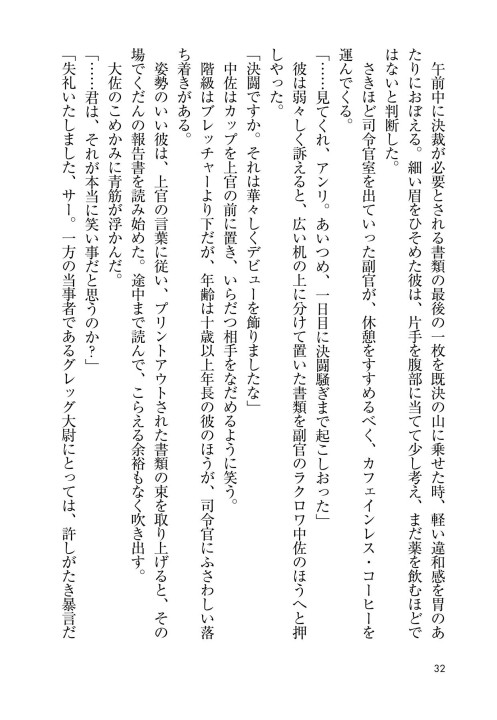 午前中に決裁が必要とされる書類の最後の一枚を既決の山に乗せた時、軽い違和感を胃のあ
たりにおぼえる。細い眉をひそめた彼は、片手を腹部に当てて少し考え、まだ薬を飲むほどで
はないと判断した。
　さきほど司令官室を出ていった副官が、休憩をすすめるべく、カフェインレス・コーヒーを
運んでくる。
「……見てくれ、アンリ。あいつめ、一日目に決闘騒ぎまで起こしおった」
　彼は弱々しく訴えると、広い机の上に分けて置いた書類を副官のラクロワ中佐のほうへと押
しやった。
「決闘ですか。それは華々しくデビューを飾りましたな」
　中佐はカップを上官の前に置き、いらだつ相手をなだめるように笑う。
　階級はブレッチャーより下だが、年齢は十歳以上年長の彼のほうが、司令官にふさわしい落
ち着きがある。
　姿勢のいい彼は、上官の言葉に従い、プリントアウトされた書類の束を取り上げると、その
場でくだんの報告書を読み始めた。途中まで読んで、こらえる余裕もなく吹き出す。
　大佐のこめかみに青筋が浮かんだ。
「……君は、それが本当に笑い事だと思うのか？」
「失礼いたしました、サー。一方の当事者であるグレッグ大尉にとっては、許しがたき暴言だ
32